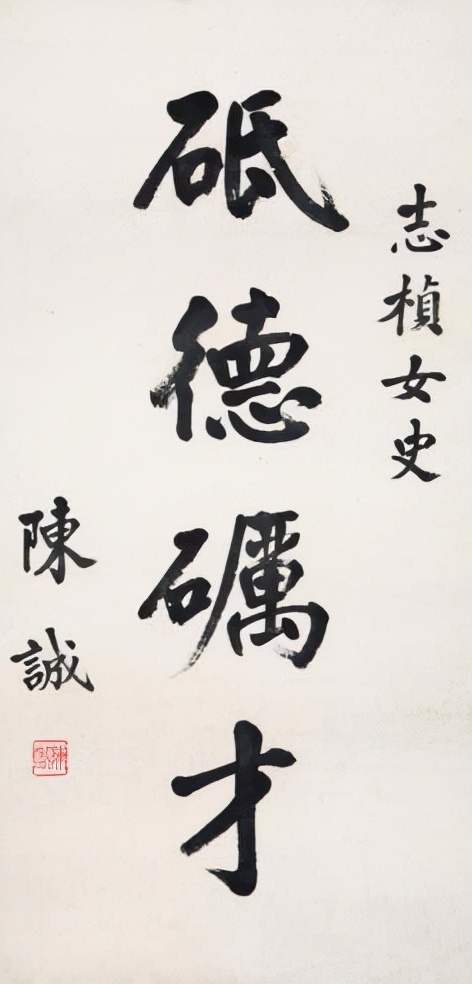 志楨女史
砥德礪才
陳誠